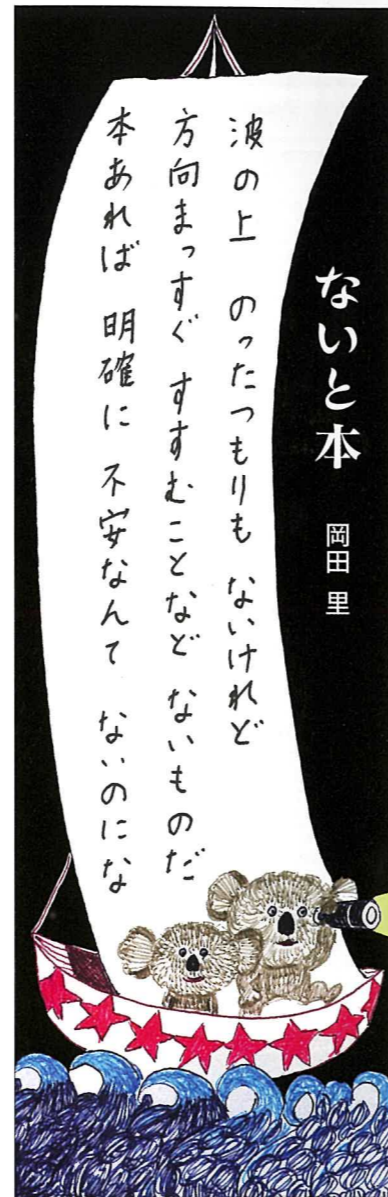 ないと本
岡田 里
波の上 のったつもりも ないけれど
方向まっすぐ すすむことなど ないものだ
本あれば 明確に 不安なんて ないのにな